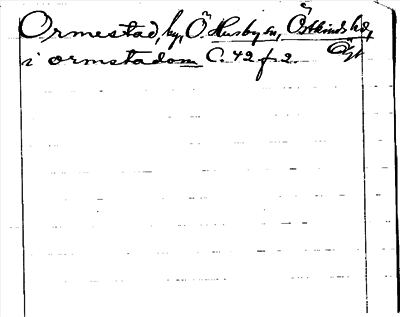 Ormestad, by, Ö. Husby sn, Östkinds hd,
Ögl
i ormstadom C. 42 f. 2.